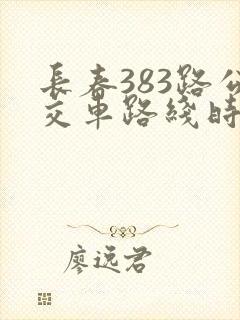 長春383路公
交車路綫時
廖远君